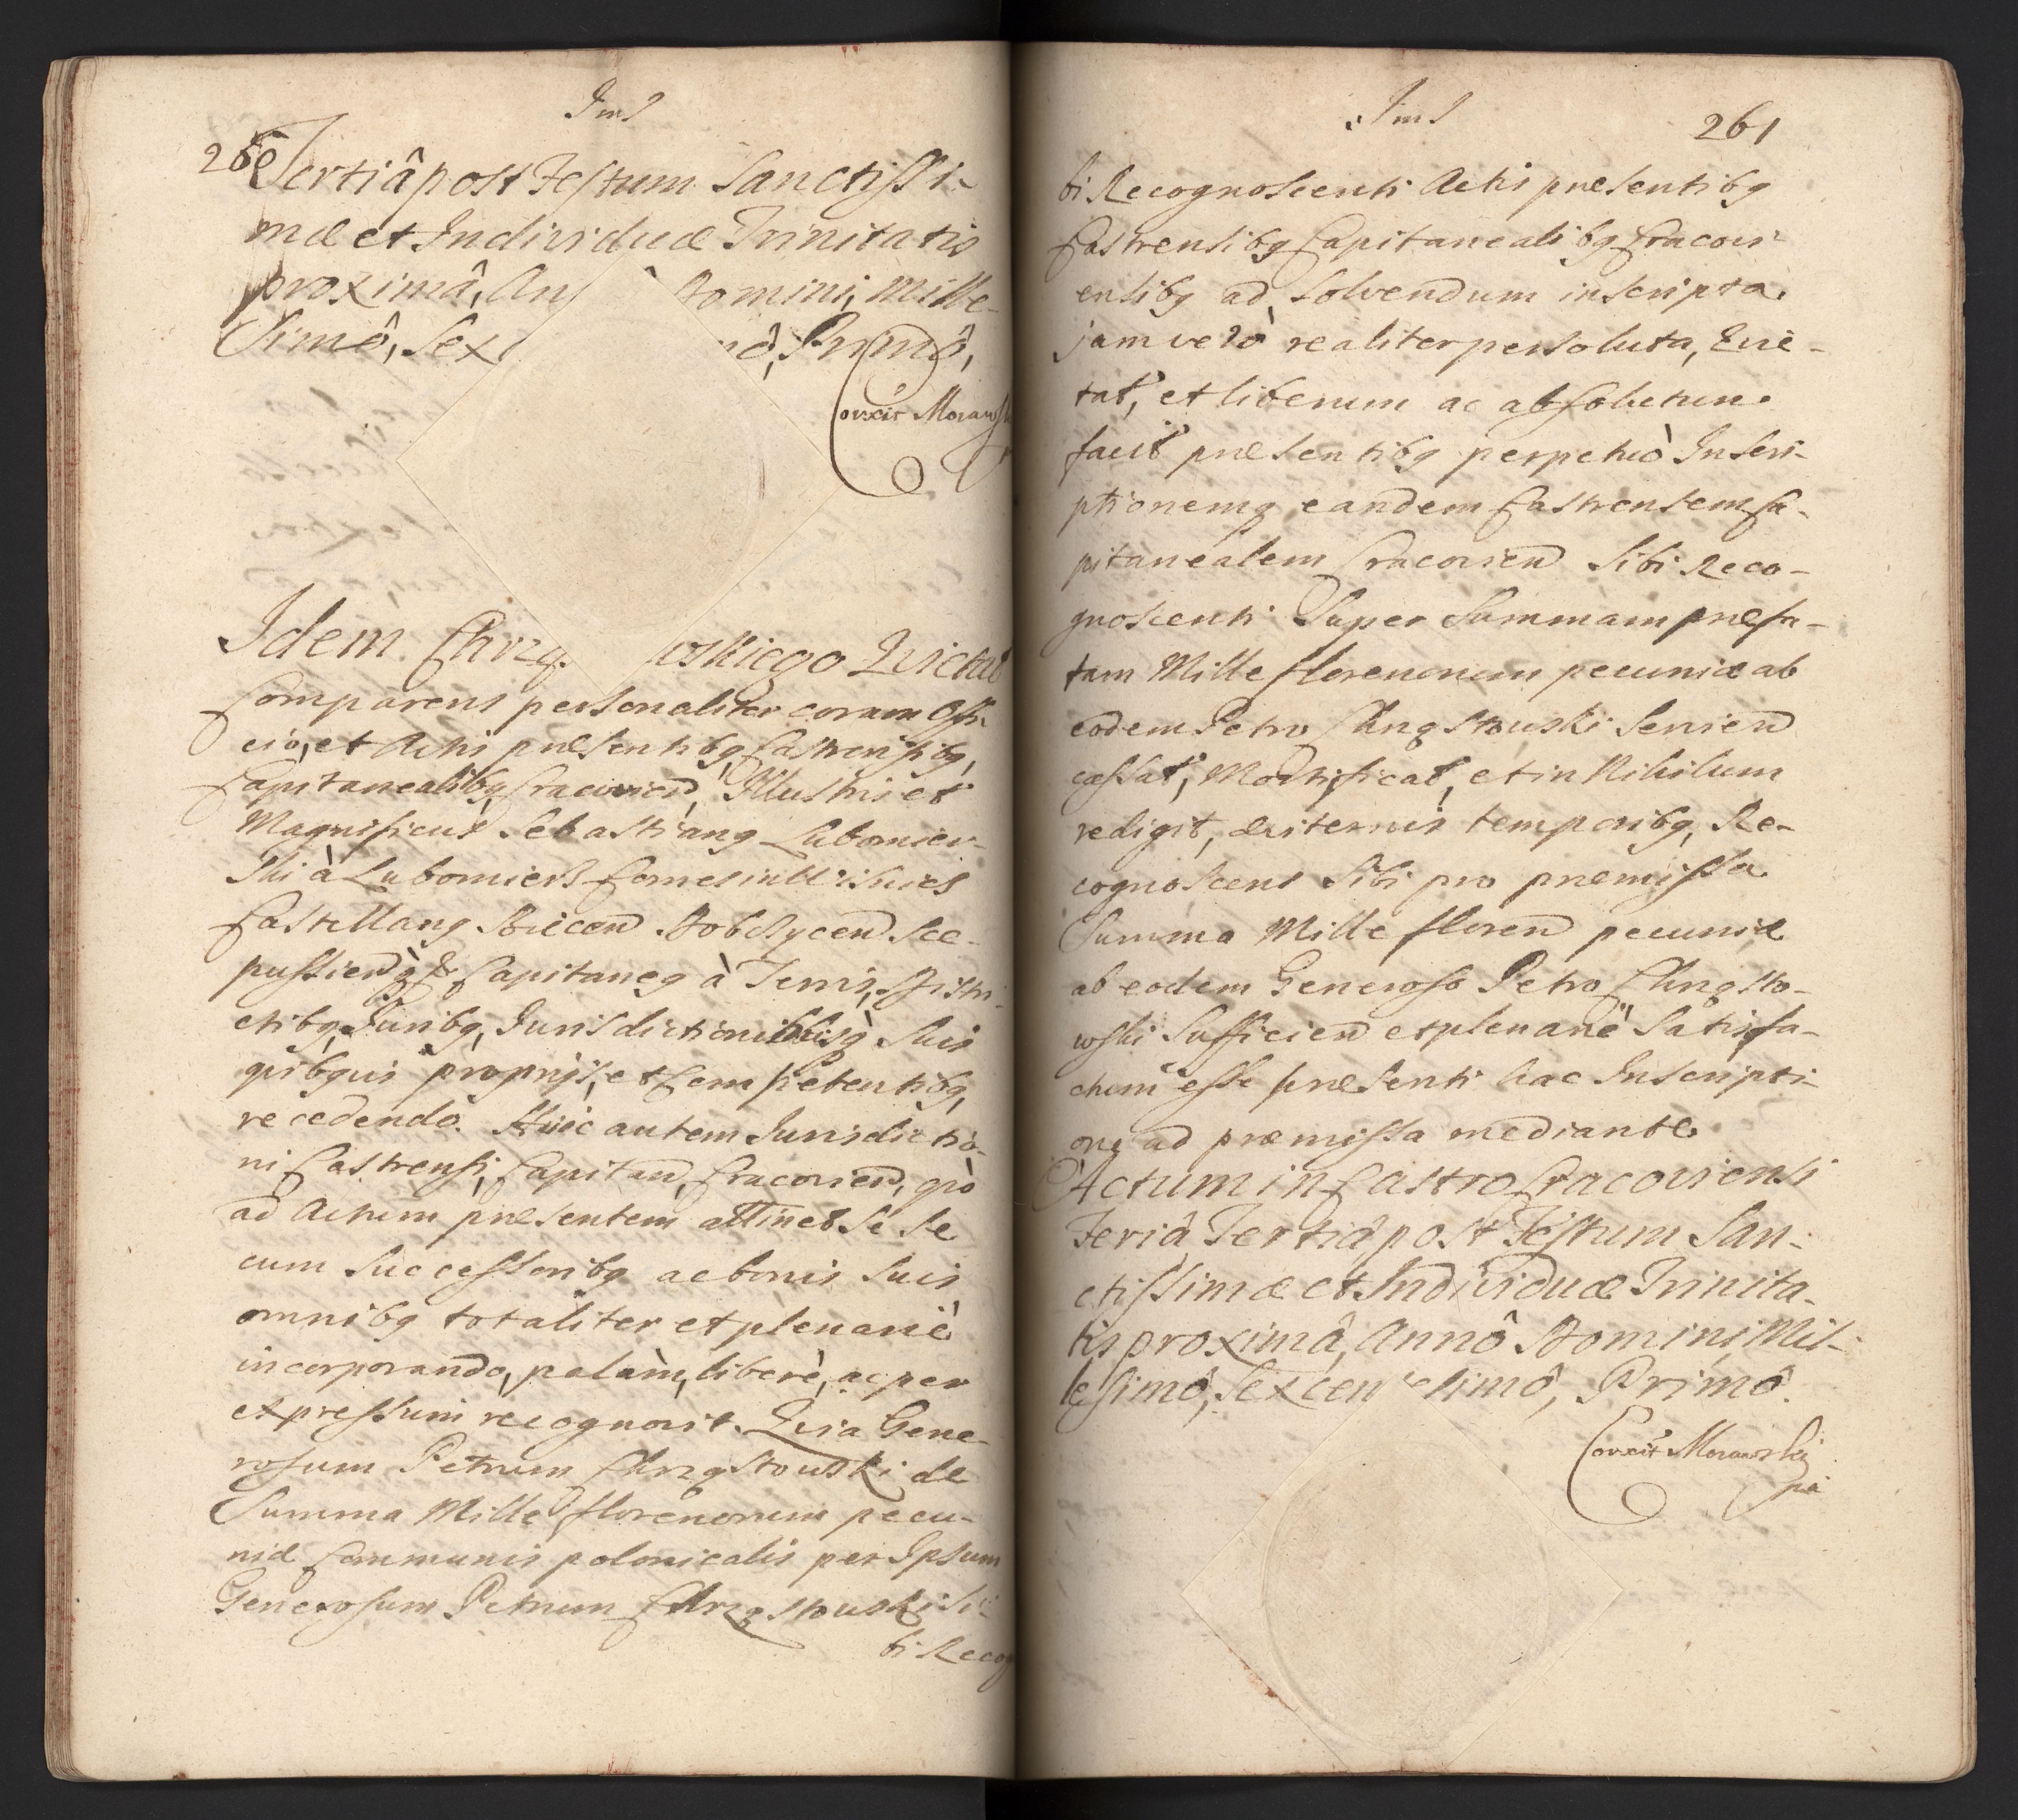 Ims
260
Tertiâ post Festum Sanctissi-
mæ et Individuæ Trinitatis
proximâ, An Domini, Mille-
Simô, Sex nô, Primô,
Corexit Morawsk
Idem Chrzą oskiego Qvietat
Comparens personaliter coram Offi
ciô, et Actis præsentibꝗ Castrensibꝗ,
Capitanealibꝗ Cracovien̄, Illustris et
Magnificus Sebastianꝗ Lubomier-
ski à Lubomiers Comes in Wisnics
Castellanꝗ Biecen̄ Dobczycen̄ Sce-
pussien̄ꝗ & Capitaneꝗ à Terris, Distri-
ctibꝗ, Juribꝗ, Jurisdictionibusꝗ Suis
qvibꝗvis proprijs, et Competentibꝗ,
recedendo. Huic autem Jurisdictio-
ni Castrensi, Capitan̄, Cracovien̄, qvò
ad Actum præsentem attinet Se Se
cum Successoribꝗ ac bonis Suis
omnibꝗ totaliter et plenariè
incorporando, palàm, liberè, ac per
expressum recognovit. Qvia Gene-
rosum Petrum Chrząstowski de
Summa Mille florenorum pecu-
niæ Communis polonicalis per Ipsum
Generosum Petrum Chrząstowski Si-
bi Recog
Ims
261
bi Recognoscenti Actis præsentibꝗ
Castrensibꝗ Capitanealibꝗ Cracovi-
ensibꝗ ad Solvendum inscripta
jam verò realiter persoluta, Qvie-
tat, et liberum ac absolutum
facit præsentibꝗ perpetuò Inscri-
ptionemꝗ eandem Castrensem Ca-
pitanealem Cracovien̄ Sibi Reco-
gnoscenti Super Summam præfa-
tam Mille florenorum pecuniæ ab
eodem Petro Chrząstowski Servien̄
cassat, Mortificat, et in Nihilum
redigit, æviternis temporibꝗ, Re-
cognoscens Sibi pro præmissa
Summa Mille floren̄ pecuniæ
ab eodem Generoso Petro Chrząsto-
wski Sufficien̄ et plenariè Satisfa-
ctum esse præsenti hac Inscripti-
one ad præmissa mediante.
Actum in Castro Cracoviensi
Feriâ Tertiâ post Festum San-
ctissimæ et Individuæ Trinita-
tis proximâ, Annô Domini, Mil-
lesimô, Sexcentesimô, Primô.
Corexit Morawski
mp